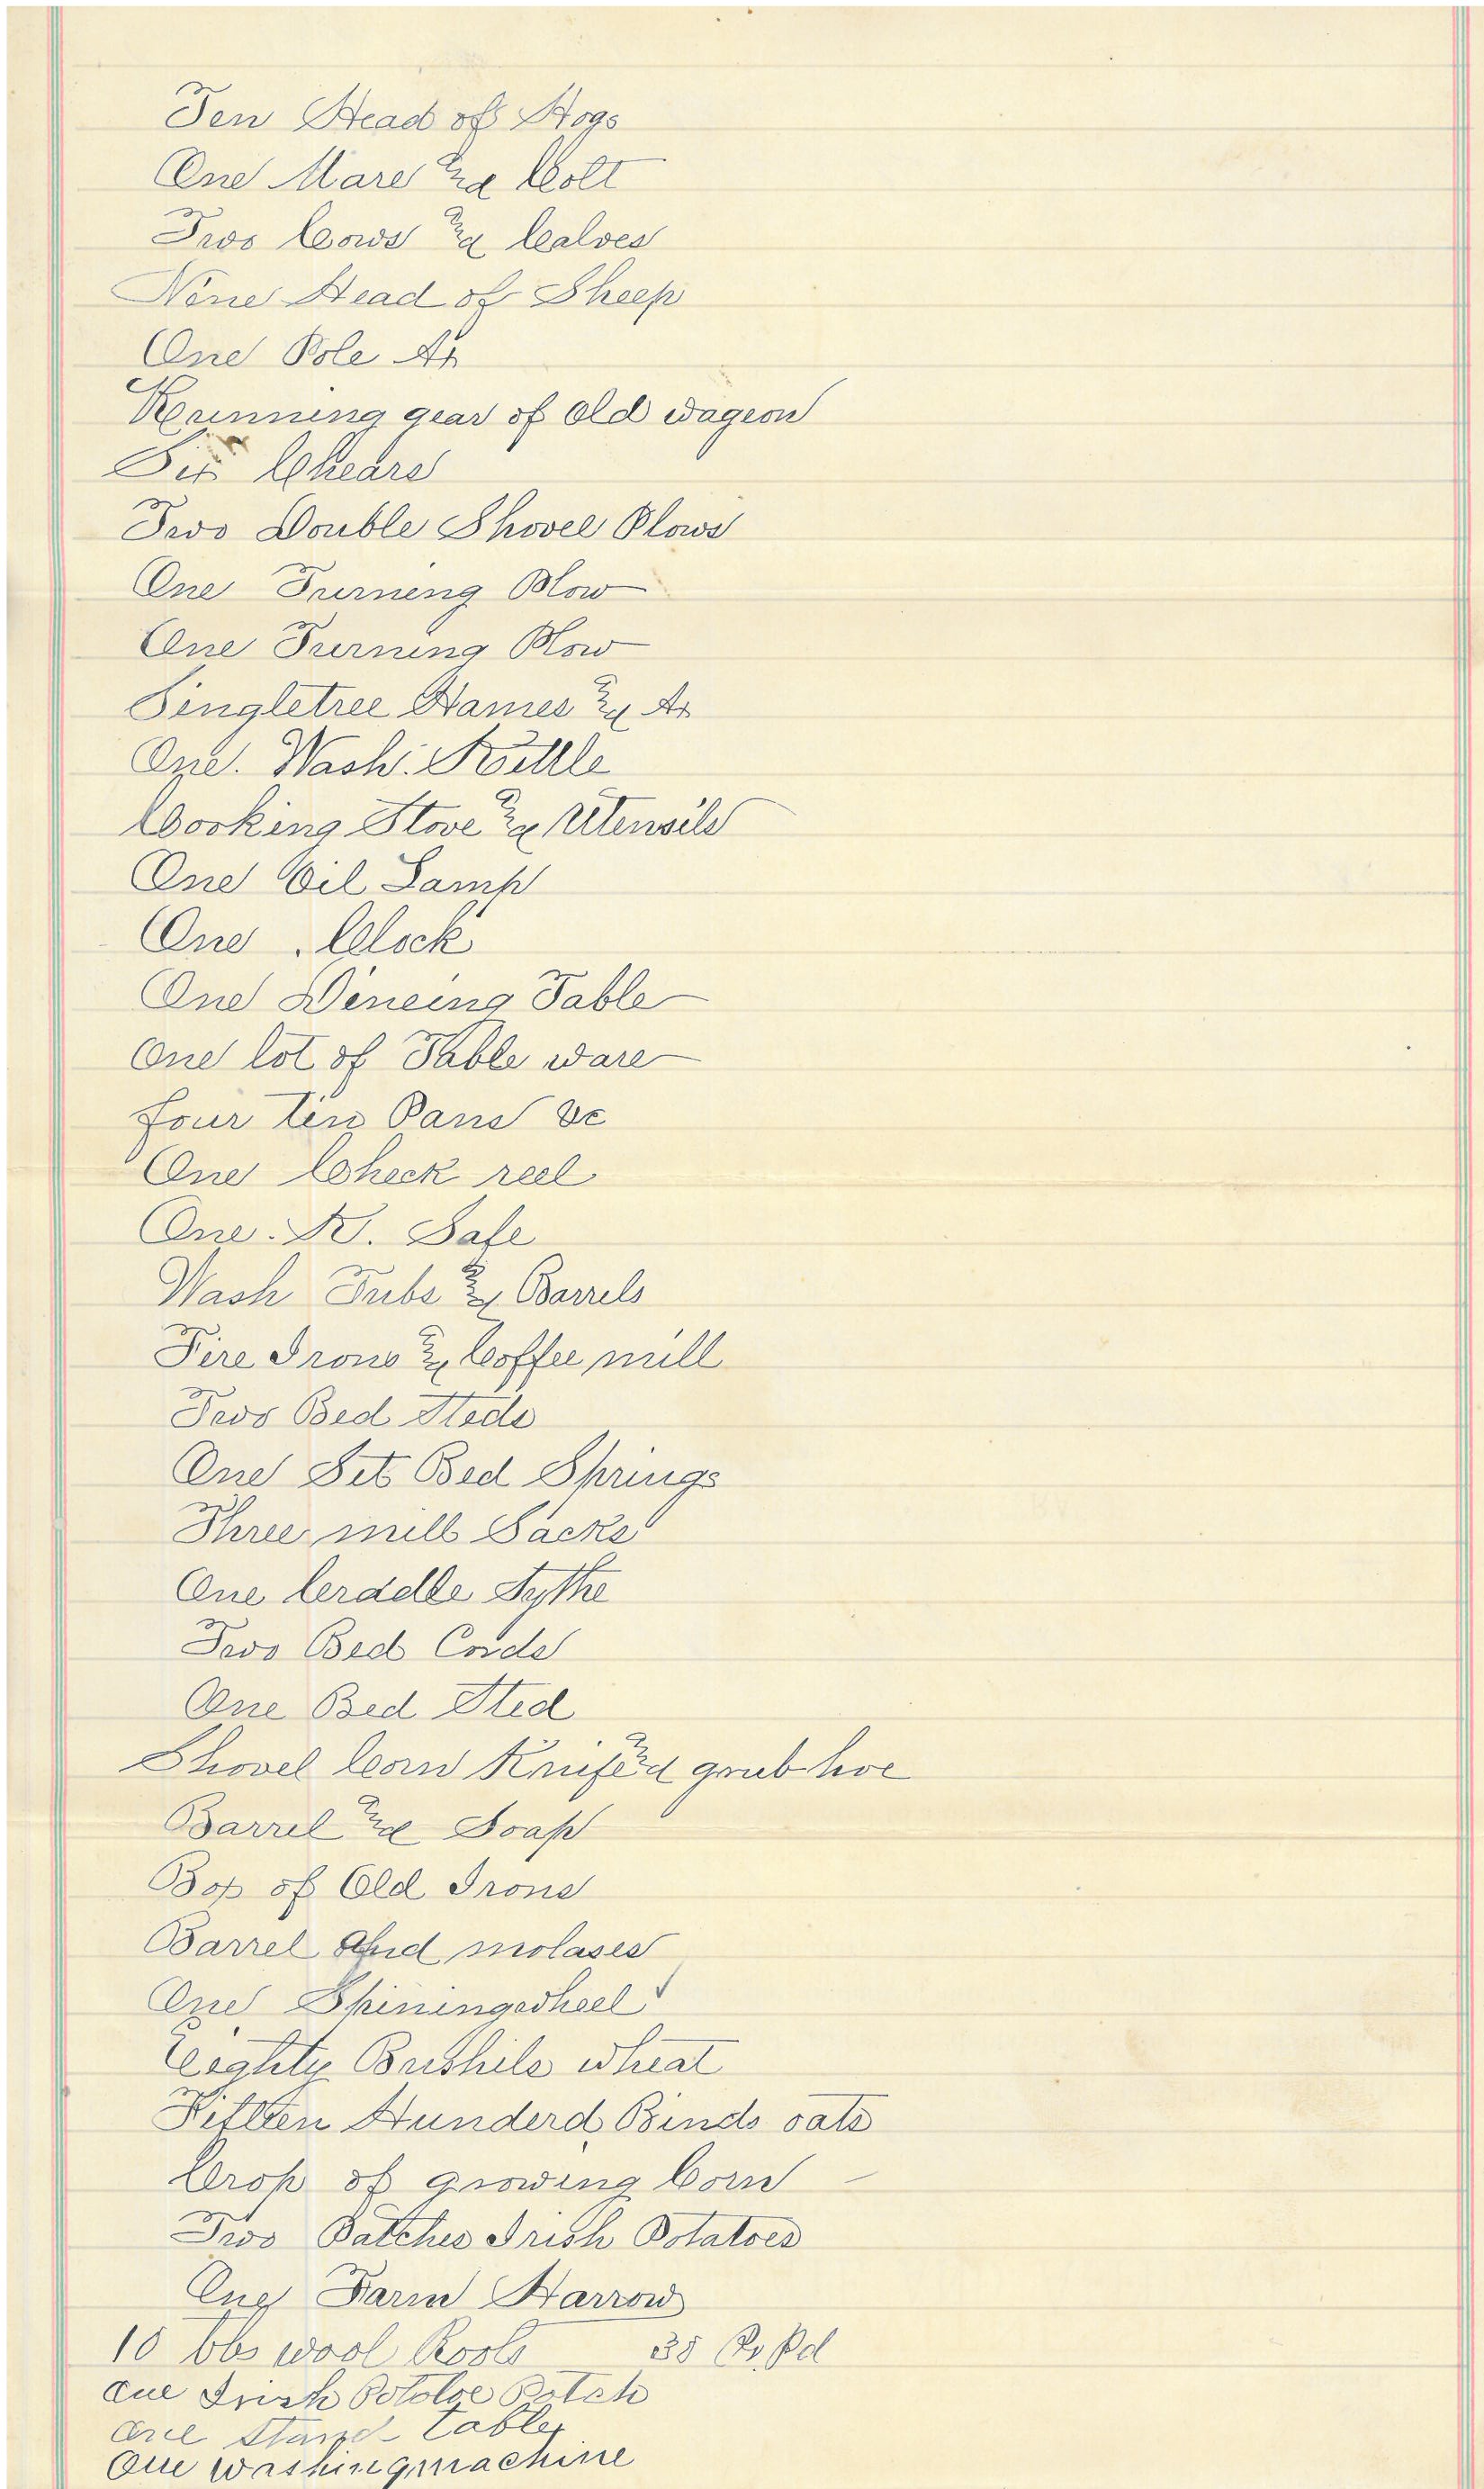 Ten Head of Hogs
One Mare & Colt
Two Cows & Calves
Nine Head of Sheep
One Pole Ax
Running gear of Old wageon
Six Chears
Two Double Shovel Plows
One Turneng Plow
One Turning Plow
Singletree Hames &
One. Wash. Kettle
Cooking Stove & Utensils
One Oil Lamp
One Clock
One Dineing Table
One lot of Table ware
four tin Pans &c
One Check reel
One. K. Safe
Wash Tubs & Barrels
Fire Irons & Coffee mill
Two Bed Steds
One Set Bed Springs
Three mill Sacks
One Cradle Sythe
Two Bed Cords
One Bed Sted
Shovel Corn Knife & grub hoe
Barrel & Soap
Box of Old Irons
Barrel and molases
One Spiningwheel
Eighty Bushils wheat
Fifteen Hunderd Binds oats
Crop of growing Corn
Two Patches Irish Potatoes
One Farm Harrow
10 lbs wool Rools 35 Pr Pd
one Irish Pototoe Patch
one Stand table
One washingmachine